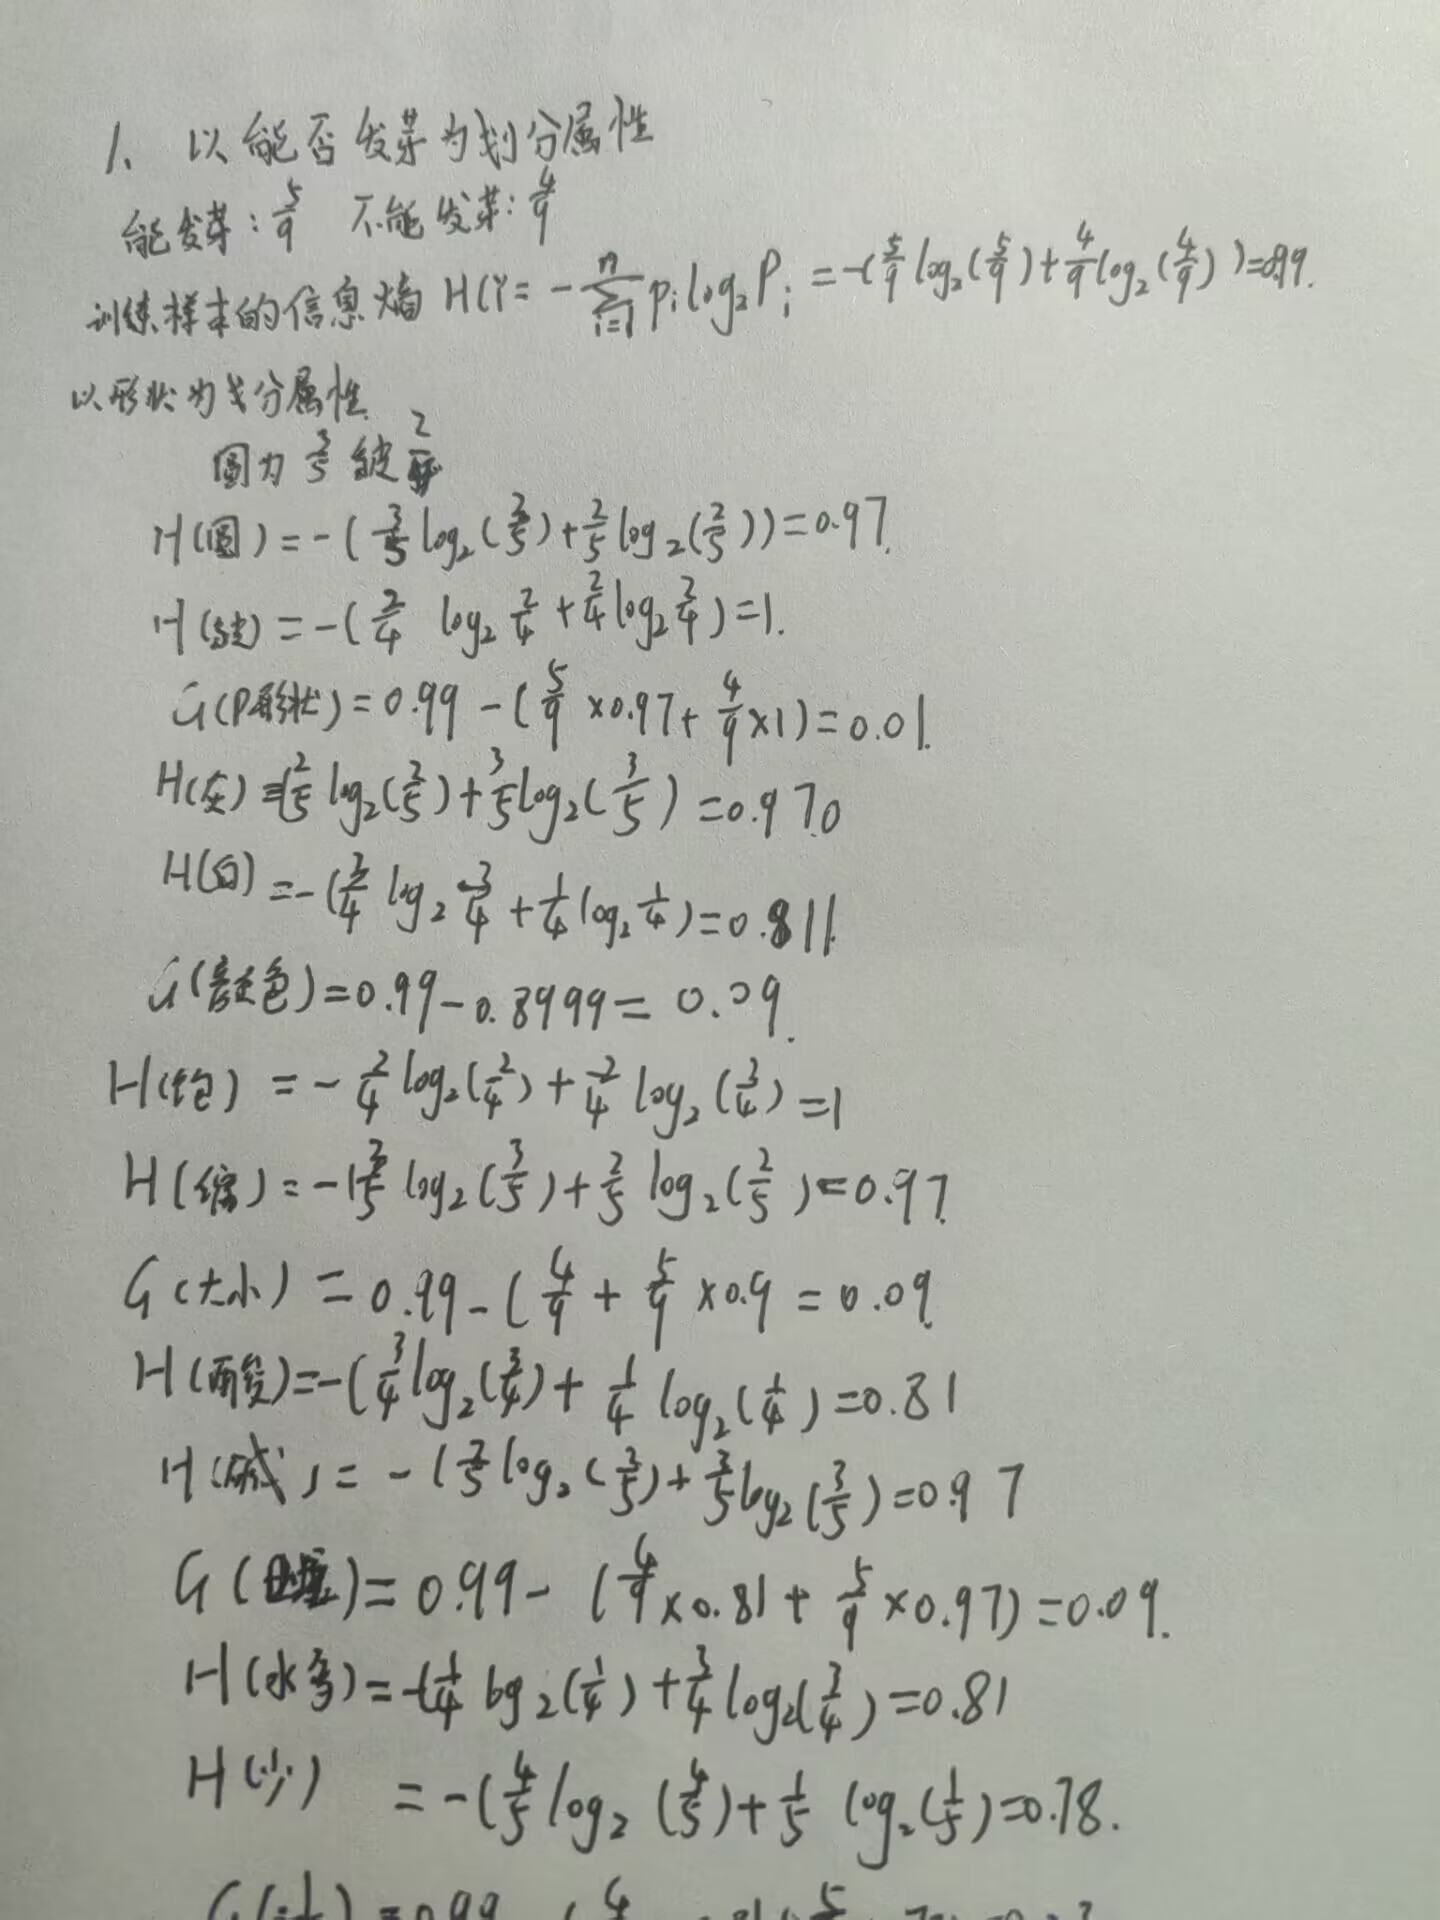 1、以能否发芽为划分属性
能发芽：5/9 不能发芽：4/9
训练样本的信息熵 H(Y= -∑_{i=1}^{n} p_i log_2 P_i = -(5/9 log_2(5/9)+4/9 log_2(4/9))=0.99.
以形状为划分属性.
圆为 3/5 皱 2/5
H(圆)=-(3/5 log_2(3/5)+2/5 log_2(2/5))=0.97.
H(皱)=-(2/4 log_2 2/4+2/4 log_2 2/4)=1.
G(P形状)=0.99-(5/9×0.97+4/9×1)=0.01.
H(灰)=-(2/5 log_2(2/5)+3/5 log_2(3/5)=0.970
H(白)=-(3/4 log_2 3/4+1/4 log_2 1/4)=0.811.
G(颜色)=0.99-0.8999=0.09.
H(饱)=-2/4 log_2(2/4)+2/4 log_2(2/4)=1
H(缩)=-(3/5 log_2(3/5)+2/5 log_2(2/5)=0.97.
G(大小)=0.99-(4/9+5/9×0.9=0.09.
H(酸)=-(3/4 log_2(3/4)+1/4 log_2(1/4)=0.81
H(碱)=-(2/5 log_2(2/5)+3/5 log_2(3/5)=0.97
G( )=0.99-(4/9×0.81+5/9×0.97)=0.09.
H(水多)=-(1/4 log_2(1/4)+3/4 log_2(3/4)=0.81
H(少)=-(4/5 log_2(4/5)+1/5 log_2(1/5)=0.78.